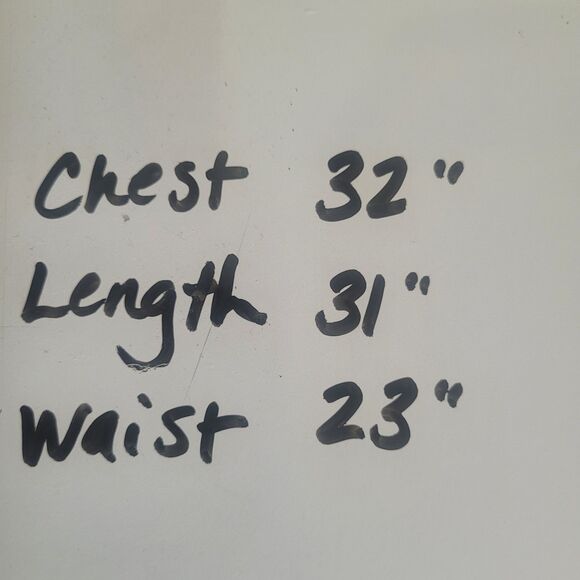 Chest 32"
Length 31"
Waist 23"